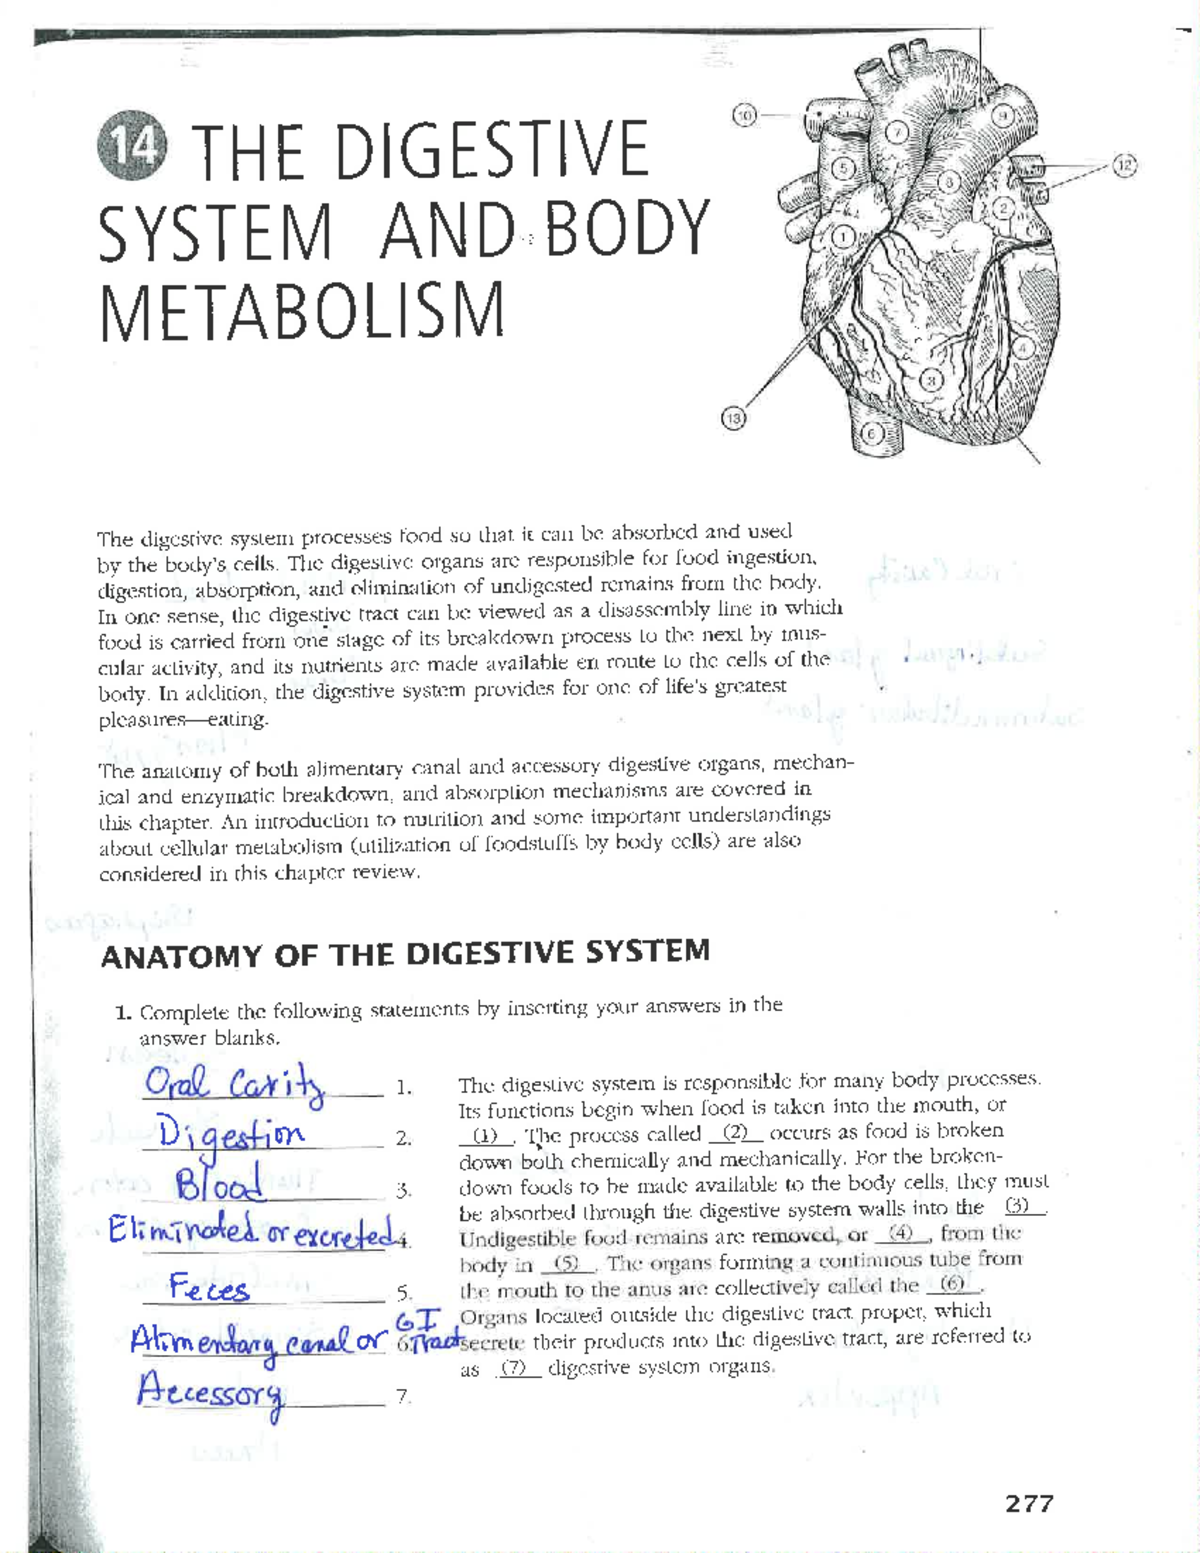 14 THE DIGESTIVE
SYSTEM AND BODY
METABOLISM
10
9
7
12
5
8
2
1
4
3
13
6
The digestive system processes food so that it can be absorbed and used
by the body's cells. The digestive organs are responsible for food ingestion,
digestion, absorption, and elimination of undigested remains from the body.
In one sense, the digestive tract can be viewed as a disassembly line in which
food is carried from one stage of its breakdown process to the next by mus-
cular activity, and its nutrients are made available en route to the cells of the
body. In addition, the digestive system provides for one of life's greatest
pleasures—eating.
The anatomy of both alimentary canal and accessory digestive organs, mechan-
ical and enzymatic breakdown, and absorption mechanisms are covered in
this chapter. An introduction to nutrition and some important understandings
about cellular metabolism (utilization of foodstuffs by body cells) are also
considered in this chapter review.
ANATOMY OF THE DIGESTIVE SYSTEM
1. Complete the following statements by inserting your answers in the
answer blanks.
Oral Cavity 1.
Digestion 2.
Blood 3.
Eliminated or excreted 4.
Feces 5.
Alimentary canal or GI Tract 6.
Accessory 7.
The digestive system is responsible for many body processes.
Its functions begin when food is taken into the mouth, or
(1) . The process called (2) occurs as food is broken
down both chemically and mechanically. For the broken-
down foods to be made available to the body cells, they must
be absorbed through the digestive system walls into the (3) .
Undigestible food remains are removed, or (4) , from the
body in (5) . The organs forming a continuous tube from
the mouth to the anus are collectively called the (6) .
Organs located outside the digestive tract proper, which
secrete their products into the digestive tract, are referred to
as (7) digestive system organs.
277